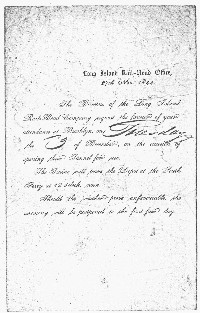 Long Island Rail-Road Office,
The Directors of the Long Island
Rail-Road Company request the favour of your
attendance at Brooklyn, on Tuesday
the 3 of December, on the occasion of
opening their Tunnel for use.
The Train will leave the Depot at the South
Ferry at 12 o'clock, noon.
Should the weather prove unfavourable, the
ceremony will be postponed to the first fair day.